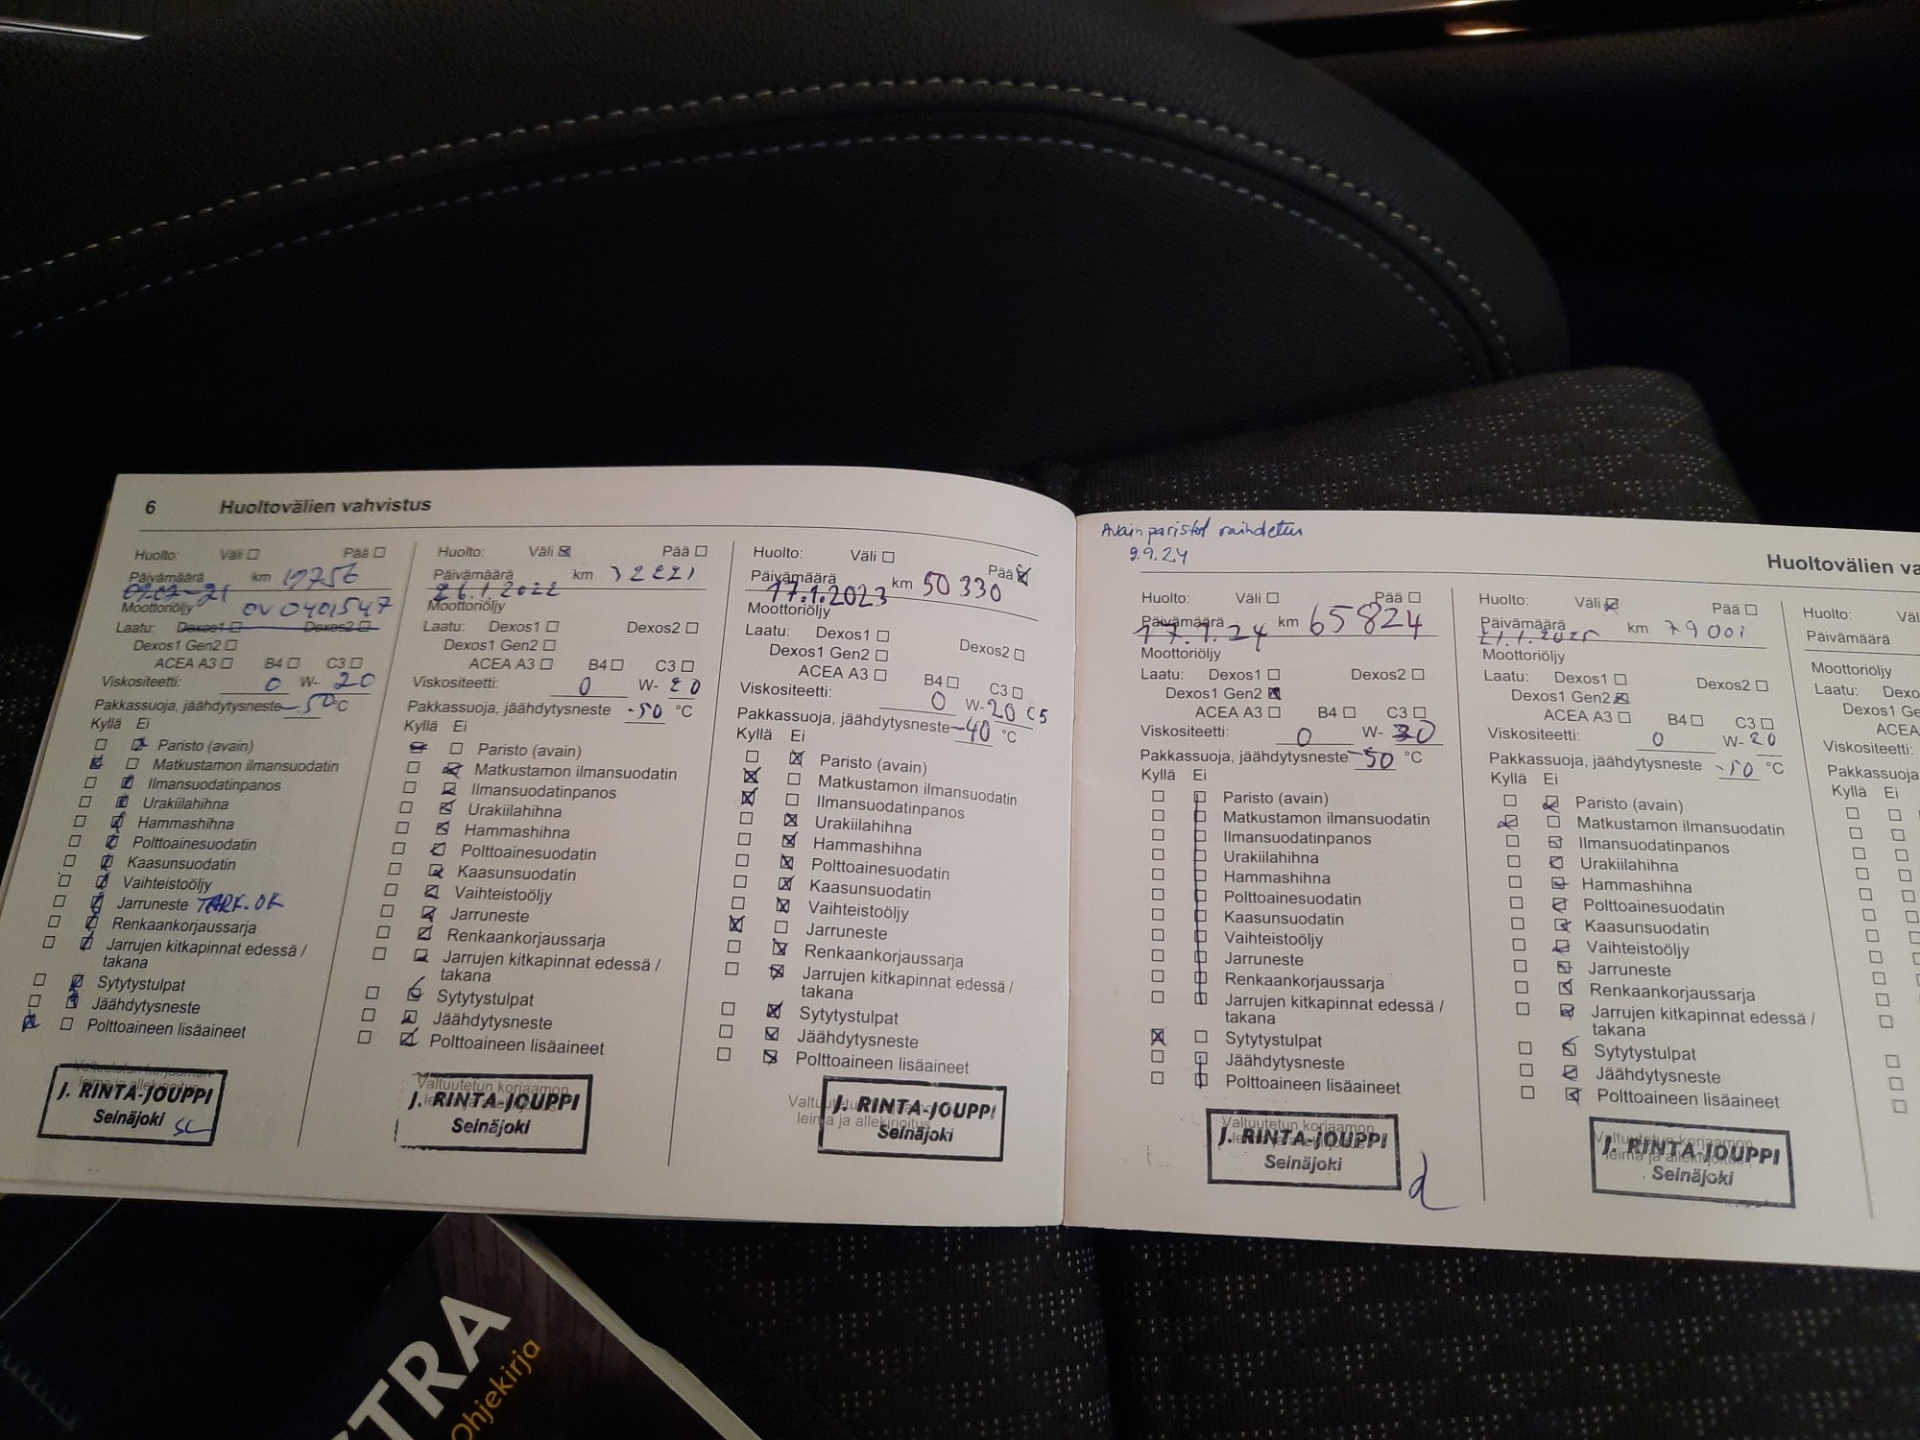 6 Huoltovälien vahvistus
Huolto: Väli ☐ Pää ☐
Päivämäärä km 19756
Moottoriöljy OV0401547
Laatu: Dexos1 ☐ Dexos2 ☐
Dexos1 Gen2 ☐
ACEA A3 ☐ B4 ☐ C3 ☐
Viskositeetti: 0 W- 20
Pakkassuoja, jäähdytysneste -50 °C
Kyllä Ei
☐ ☒ Paristo (avain)
☒ ☐ Matkustamon ilmansuodatin
☐ ☒ Ilmansuodatinpanos
☐ ☒ Urakiilahihna
☐ ☒ Hammashihna
☐ ☒ Polttoainesuodatin
☐ ☒ Kaasunsuodatin
☐ ☒ Vaihteistoöljy
☐ ☒ Jarruneste TARK.OK
☐ ☒ Renkaankorjaussarja
☐ ☒ Jarrujen kitkapinnat edessä /
takana
☐ ☒ Sytytystulpat
☐ ☒ Jäähdytysneste
☒ ☐ Polttoaineen lisäaineet
Valtuutetun korjaamon
leima ja allekirjoitus
J. RINTA-JOUPPI
Seinäjoki
Huolto: Väli ☒ Pää ☐
Päivämäärä km 32221
26.1.2022
Moottoriöljy
Laatu: Dexos1 ☐ Dexos2 ☐
Dexos1 Gen2 ☐
ACEA A3 ☐ B4 ☐ C3 ☐
Viskositeetti: 0 W- 20
Pakkassuoja, jäähdytysneste -50 °C
Kyllä Ei
☒ ☐ Paristo (avain)
☐ ☒ Matkustamon ilmansuodatin
☐ ☒ Ilmansuodatinpanos
☐ ☒ Urakiilahihna
☐ ☒ Hammashihna
☐ ☒ Polttoainesuodatin
☐ ☒ Kaasunsuodatin
☐ ☒ Vaihteistoöljy
☐ ☒ Jarruneste
☐ ☒ Renkaankorjaussarja
☐ ☒ Jarrujen kitkapinnat edessä /
takana
☐ ☒ Sytytystulpat
☐ ☒ Jäähdytysneste
☐ ☒ Polttoaineen lisäaineet
Valtuutetun korjaamon
leima ja allekirjoitus
J. RINTA-JOUPPI
Seinäjoki
Huolto: Väli ☐ Pää ☒
Päivämäärä km 50 330
17.1.2023
Moottoriöljy
Laatu: Dexos1 ☐ Dexos2 ☐
Dexos1 Gen2 ☐
ACEA A3 ☐ B4 ☐ C3 ☐
Viskositeetti: 0 W- 20 C5
Pakkassuoja, jäähdytysneste -40 °C
Kyllä Ei
☐ ☒ Paristo (avain)
☒ ☐ Matkustamon ilmansuodatin
☒ ☐ Ilmansuodatinpanos
☐ ☒ Urakiilahihna
☐ ☒ Hammashihna
☐ ☒ Polttoainesuodatin
☐ ☒ Kaasunsuodatin
☐ ☒ Vaihteistoöljy
☒ ☐ Jarruneste
☐ ☒ Renkaankorjaussarja
☐ ☒ Jarrujen kitkapinnat edessä /
takana
☐ ☒ Sytytystulpat
☐ ☒ Jäähdytysneste
☐ ☒ Polttoaineen lisäaineet
Valtuutetun korjaamon
leima ja allekirjoitus
J. RINTA-JOUPPI
Seinäjoki
Avain paristot
9.9.24
Huoltovälien va
Huolto: Väli ☐ Pää ☐
Päivämäärä km 65824
Moottoriöljy
Laatu: Dexos1 ☐ Dexos2 ☐
Dexos1 Gen2 ☒
ACEA A3 ☐ B4 ☐ C3 ☐
Viskositeetti: 0 W-
Pakkassuoja, jäähdytysneste -50 °C
Kyllä Ei
☐ ☐ Paristo (avain)
☐ ☐ Matkustamon ilmansuodatin
☐ ☐ Ilmansuodatinpanos
☐ ☐ Urakiilahihna
☐ ☐ Hammashihna
☐ ☐ Polttoainesuodatin
☐ ☐ Kaasunsuodatin
☐ ☐ Vaihteistoöljy
☐ ☐ Jarruneste
☐ ☐ Renkaankorjaussarja
☐ ☐ Jarrujen kitkapinnat edessä /
takana
☒ ☐ Sytytystulpat
☐ ☐ Jäähdytysneste
☐ ☐ Polttoaineen lisäaineet
Valtuutetun korjaamon
leima ja allekirjoitus
J. RINTA-JOUPPI
Seinäjoki
Huolto: Väli ☒ Pää ☐
Päivämäärä km 79001
Moottoriöljy
Laatu: Dexos1 ☐ Dexos2 ☐
Dexos1 Gen2 ☒
ACEA A3 ☐ B4 ☐ C3 ☐
Viskositeetti: 0 W- 20
Pakkassuoja, jäähdytysneste °C
Kyllä Ei
☐ ☒ Paristo (avain)
☒ ☐ Matkustamon ilmansuodatin
☐ ☒ Ilmansuodatinpanos
☐ ☒ Urakiilahihna
☐ ☒ Hammashihna
☐ ☒ Polttoainesuodatin
☐ ☒ Kaasunsuodatin
☐ ☒ Vaihteistoöljy
☐ ☒ Jarruneste
☐ ☒ Renkaankorjaussarja
☐ ☒ Jarrujen kitkapinnat edessä /
takana
☐ ☒ Sytytystulpat
☐ ☒ Jäähdytysneste
☐ ☒ Polttoaineen lisäaineet
Valtuutetun korjaamon
leima ja allekirjoitus
J. RINTA-JOUPPI
Seinäjoki
Huolto: Väl
Päivämäärä
Moottoriöljy
Laatu: Dexo
Dexos1 Ge
ACEA
Viskositeetti:
Pakkassuoja
Kyllä Ei
TRA
Ohjekirja